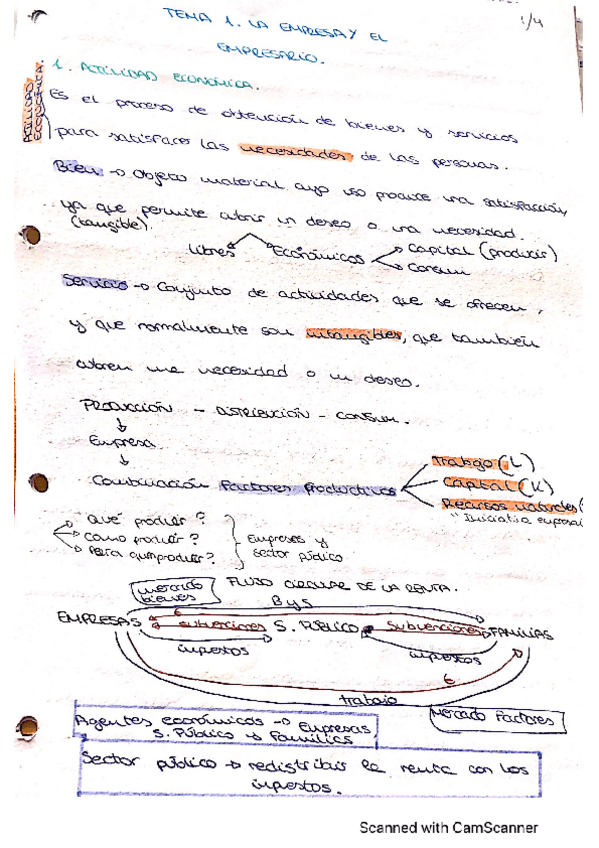 TEMA 1. LA EMPRESA Y EL
EMPRESARIO.
1/4
1. ACTIVIDAD ECONÓMICA.
ACTIVIDAD
ECONÓMICA.
Es el proceso de obtención de bienes y servicios
para satisfacer las necesidades de las personas.
Bien → Objeto material cuyo uso produce una satisfacción,
ya que permite cubrir un deseo o una necesidad.
(tangible).
Libres
Económicos
Capital (producir)
Consum
Servicio → Conjunto de actividades que se ofrecen,
y que normalmente son intangibles, que también
cubren una necesidad o un deseo.
PRODUCCIÓN - DISTRIBUCIÓN - CONSUM.
↓
Empresa
↓
Combinación Factores Productivos
Trabajo (L)
Capital (K)
Recursos naturales (
"Iniciativa empresai
Qué producir?
Cómo producir?
Para quien producir?
Empresas y
sector público
FLUJO CIRCULAR DE LA RENTA.
mercado
bienes
B y S
€
EMPRESAS
subvenciones
S. PÚBLICO
subvenciones
FAMILIAS
impostos
impostos
€
trabajo
Mercado Factores
Agentes económicos → Empresas
S. Público → Familias
Sector público → redistribuir la renta con los
impostos.
Scanned with CamScanner